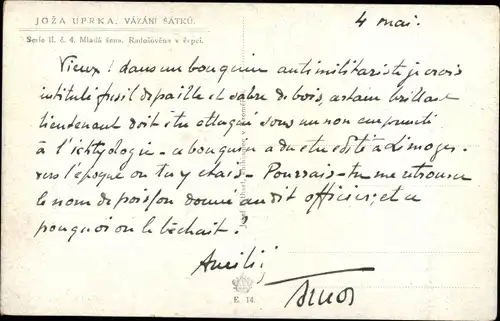 JOŽA UPRKA. VÁZÁNÍ ŠÁTKŮ.
Serie II. č. 4. Mladá žena. Radošověna v čepci.
4 mai.
Vieux! dans un bouquin antimilitariste je crois
intitulé fusil de paille et sabre de bois, certain brillant
lieutenant doit être attaqué sous un nom emprunté
à l'ichtyologie - ce bouquin a du être édité à Limoges
vers l'époque où tu y étais - Pourrais-tu me retrouver
le nom de poisson donné au dit officier, et
pourquoi on le bêchait?
Amitiés
E. 14.